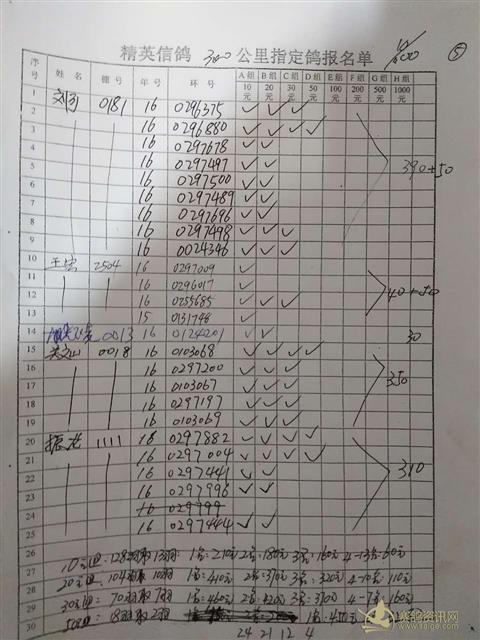 精英信鸽 300 公里指定鸽报名单
⑤
序号 姓名 棚号 年号 环号 A组10元 B组20元 C组30元 D组50元 E组100元 F组200元 G组500元 H组1000元
1 0181 16 0296375 ✓ ✓ ✓
2 16 0296880 ✓ ✓ ✓ ✓
3 16 0297678 ✓ ✓
4 16 0297497 ✓ ✓
5 16 0297500 ✓ ✓
6 16 0297489 ✓ ✓
7 16 0297696 ✓ ✓
8 16 0297498 ✓ ✓ ✓
9 16 0024346 ✓ ✓ ✓
390+50
10 2504 16 0297009 ✓
11 16 0296017 ✓
12 16 0255685 ✓ ✓ ✓
13 15 0131748 ✓
40+50
14 0013 16 0124201 ✓ ✓ 30
15 0018 16 0103068 ✓ ✓ ✓ ✓
16 16 0297200 ✓ ✓ ✓
17 16 0103067 ✓ ✓ ✓
18 16 0297197 ✓ ✓ ✓
19 16 0103069 ✓ ✓ ✓
350
20 振龙 1111 16 0297882 ✓ ✓ ✓ ✓
21 16 0297004 ✓ ✓ ✓ ✓
22 16 0297441 ✓ ✓
23 16 0297796 ✓ ✓
24 16 029799
25 16 0297444 ✓ ✓
310
26
27 10元组:128羽取13羽 1名:210元 2名:180元 3名:160元 4-13名:60元
28 20元组:104羽取10羽 1名:410元 2名:370元 3名:320元 4-10名:110元
29 30元组:70羽取7羽 1名:460元 2名:420元 3名:370元 4-7名:160元
30 50元组:18羽取2羽
24 21 12 4
赛鸽资讯网
www.saige.com